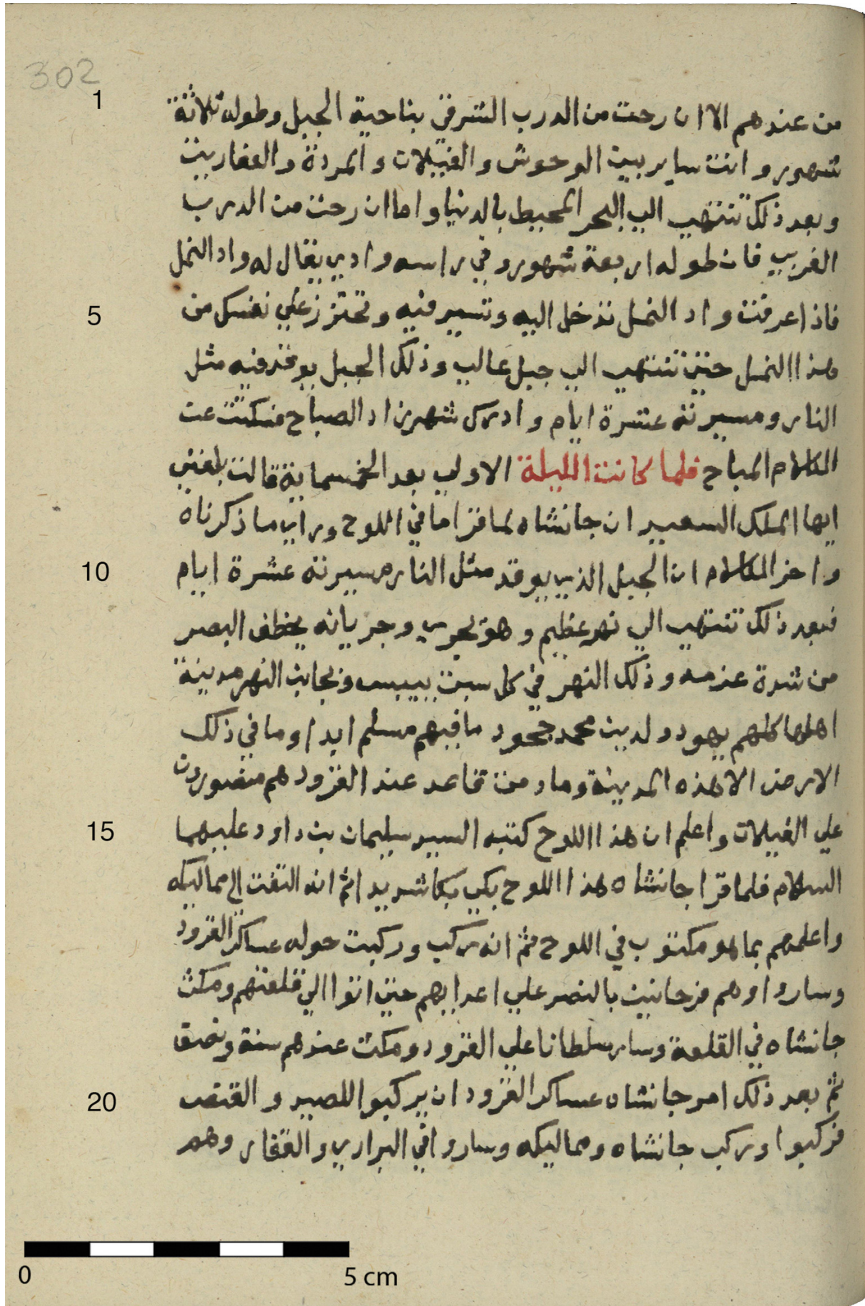 302
1
من عندهم الا ان رحت من الدرب الشرقي بناحية الجبل وطوله ثلاثة
شهور وانت ساير بين الوحوش والغيلان والمردة والعفاريت
وبعد ذلك تنتهي الي البحر المحيط بالدنيا واما ان رحت من الدرب
الغربي فان طوله اربعة شهور وفي راسه وادي يقال له واد النمل
5
فاذا عرفت واد النمل تدخل اليه وتسير فيه وتحترز علي نفسك من
هذا النمل حتي تنتهي الي جبل عالي وذلك الجبل يوقد فيه مثل
النار ومسيرته عشرة ايام وادرك شهرزاد الصباح فسكتت عن
الكلام المباح فلما كانت الليلة الاولي بعد الخمسماية قالت بلغني
ايها الملك السعيد ان جانشاه لما قرا ما في اللوح وراي ما ذكرناه
10
واخر الكلام ان الجبل الذي يوقد مثل النار مسيرته عشرة ايام
فبعد ذلك تنتهي الي نهر عظيم وهو يجري وجريانه يخطف البصر
من شدة عزمه وذلك النهر في كل سبت ييبس وبجانب النهر مدينة
اهلها كلهم يهود ولدين محمد جحود ما فيهم مسلم ابدا وما في ذلك
الارض الا هذه المدينة وما دمت قاعد عند القرود هم منصورون
15
علي الغيلان واعلم ان هذا اللوح كتبه السيد سليمان بن داود عليهما
السلام فلما قرا جانشاه هذا اللوح بكي بكا شديدا ثم انه التفت الي مماليكه
واعلمهم بما هو مكتوب في اللوح ثم انه ركب وركبت حوله عساكر القرود
وساروا وهم فرحانين بالنصر علي اعدايهم حتي اتوا الي قلعتهم ومكث
جانشاه في القلعة وسار سلطانا علي القرود ومكث عندهم سنة ونصف
20
ثم بعد ذلك امر جانشاه عساكر القرود ان يركبوا للصيد والقنص
فركبوا وركب جانشاه ومماليكه وساروا في البراري والقفار وهم
0
5 cm